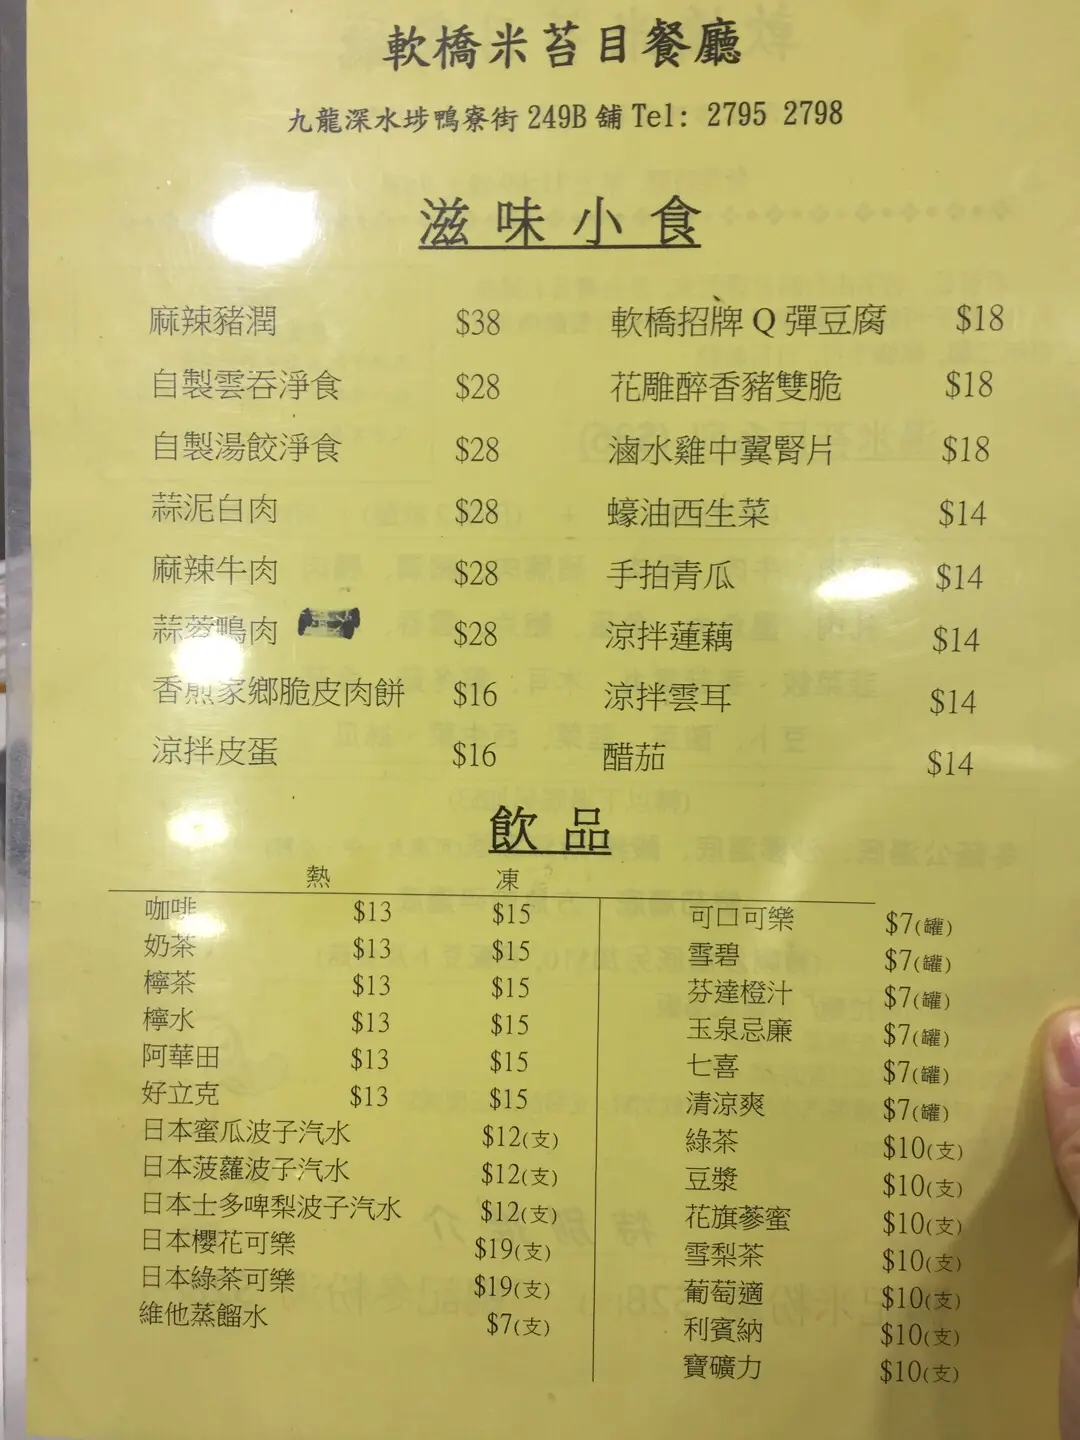 軟橋米苔目餐廳
九龍深水埗鴨寮街 249B 舖 Tel: 2795 2798
滋味小食
麻辣豬潤 $38 軟橋招牌 Q 彈豆腐 $18
自製雲吞淨食 $28 花雕醉香豬雙脆 $18
自製湯餃淨食 $28 滷水雞中翼腎片 $18
蒜泥白肉 $28 蠔油西生菜 $14
麻辣牛肉 $28 手拍青瓜 $14
蒜蔥鴨肉 $28 涼拌蓮藕 $14
香煎家鄉脆皮肉餅 $16 涼拌雲耳 $14
涼拌皮蛋 $16 醋茄 $14
飲品
熱 凍
咖啡 $13 $15 可口可樂 $7(罐)
奶茶 $13 $15 雪碧 $7(罐)
檸茶 $13 $15 芬達橙汁 $7(罐)
檸水 $13 $15 玉泉忌廉 $7(罐)
阿華田 $13 $15 七喜 $7(罐)
好立克 $13 $15 清涼爽 $7(罐)
日本蜜瓜波子汽水 $12(支) 綠茶 $10(支)
日本菠蘿波子汽水 $12(支) 豆漿 $10(支)
日本士多啤梨波子汽水 $12(支) 花旗蔘蜜 $10(支)
日本櫻花可樂 $19(支) 雪梨茶 $10(支)
日本綠茶可樂 $19(支) 葡萄適 $10(支)
維他蒸餾水 $7(支) 利賓納 $10(支)
寶礦力 $10(支)